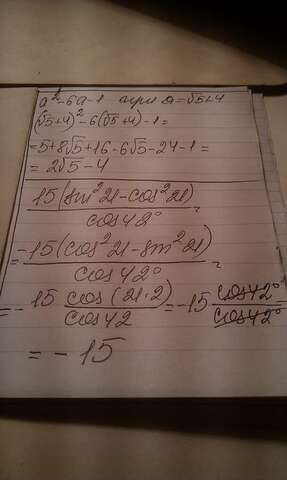 a²-6a-1 при a=√5+4
(√5+4)²-6(√5+4)-1=
=5+8√5+16-6√5-24-1=
=2√5-4
15(sin²21-cos²21)
cos42° =
=-15(cos²21-sin²21)
cos42° =
=-15 cos(21·2) =-15 cos42°
cos42 cos42°
=-15